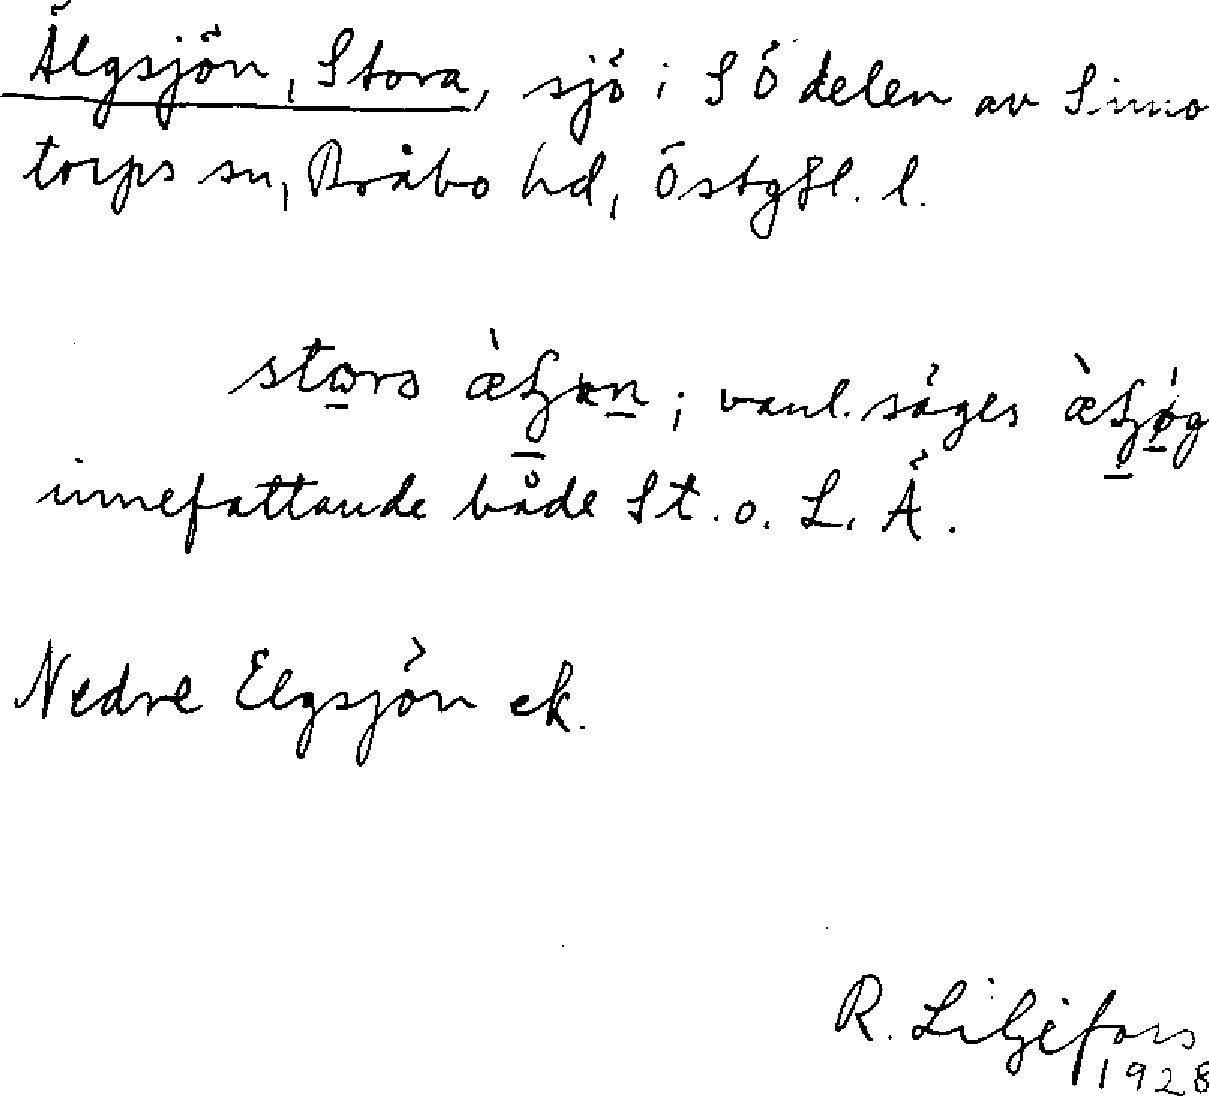 Älgsjön, Stora, sjö i SÖ delen av Simo
torps sn, Bråbo hd, Östgötl. l.
; vanl. säges
innefattande både St. o. L. Ä.
Nedre Elgsjön ek.
R. Liljefors
1928